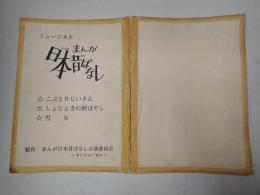 ミュージカル
まんが
日本昔ばなし
☆ こぶとりじいさん
☆ しょじょ寺の狸ばやし
☆ 雪女
製作 まんが日本昔ばなし公演委員会